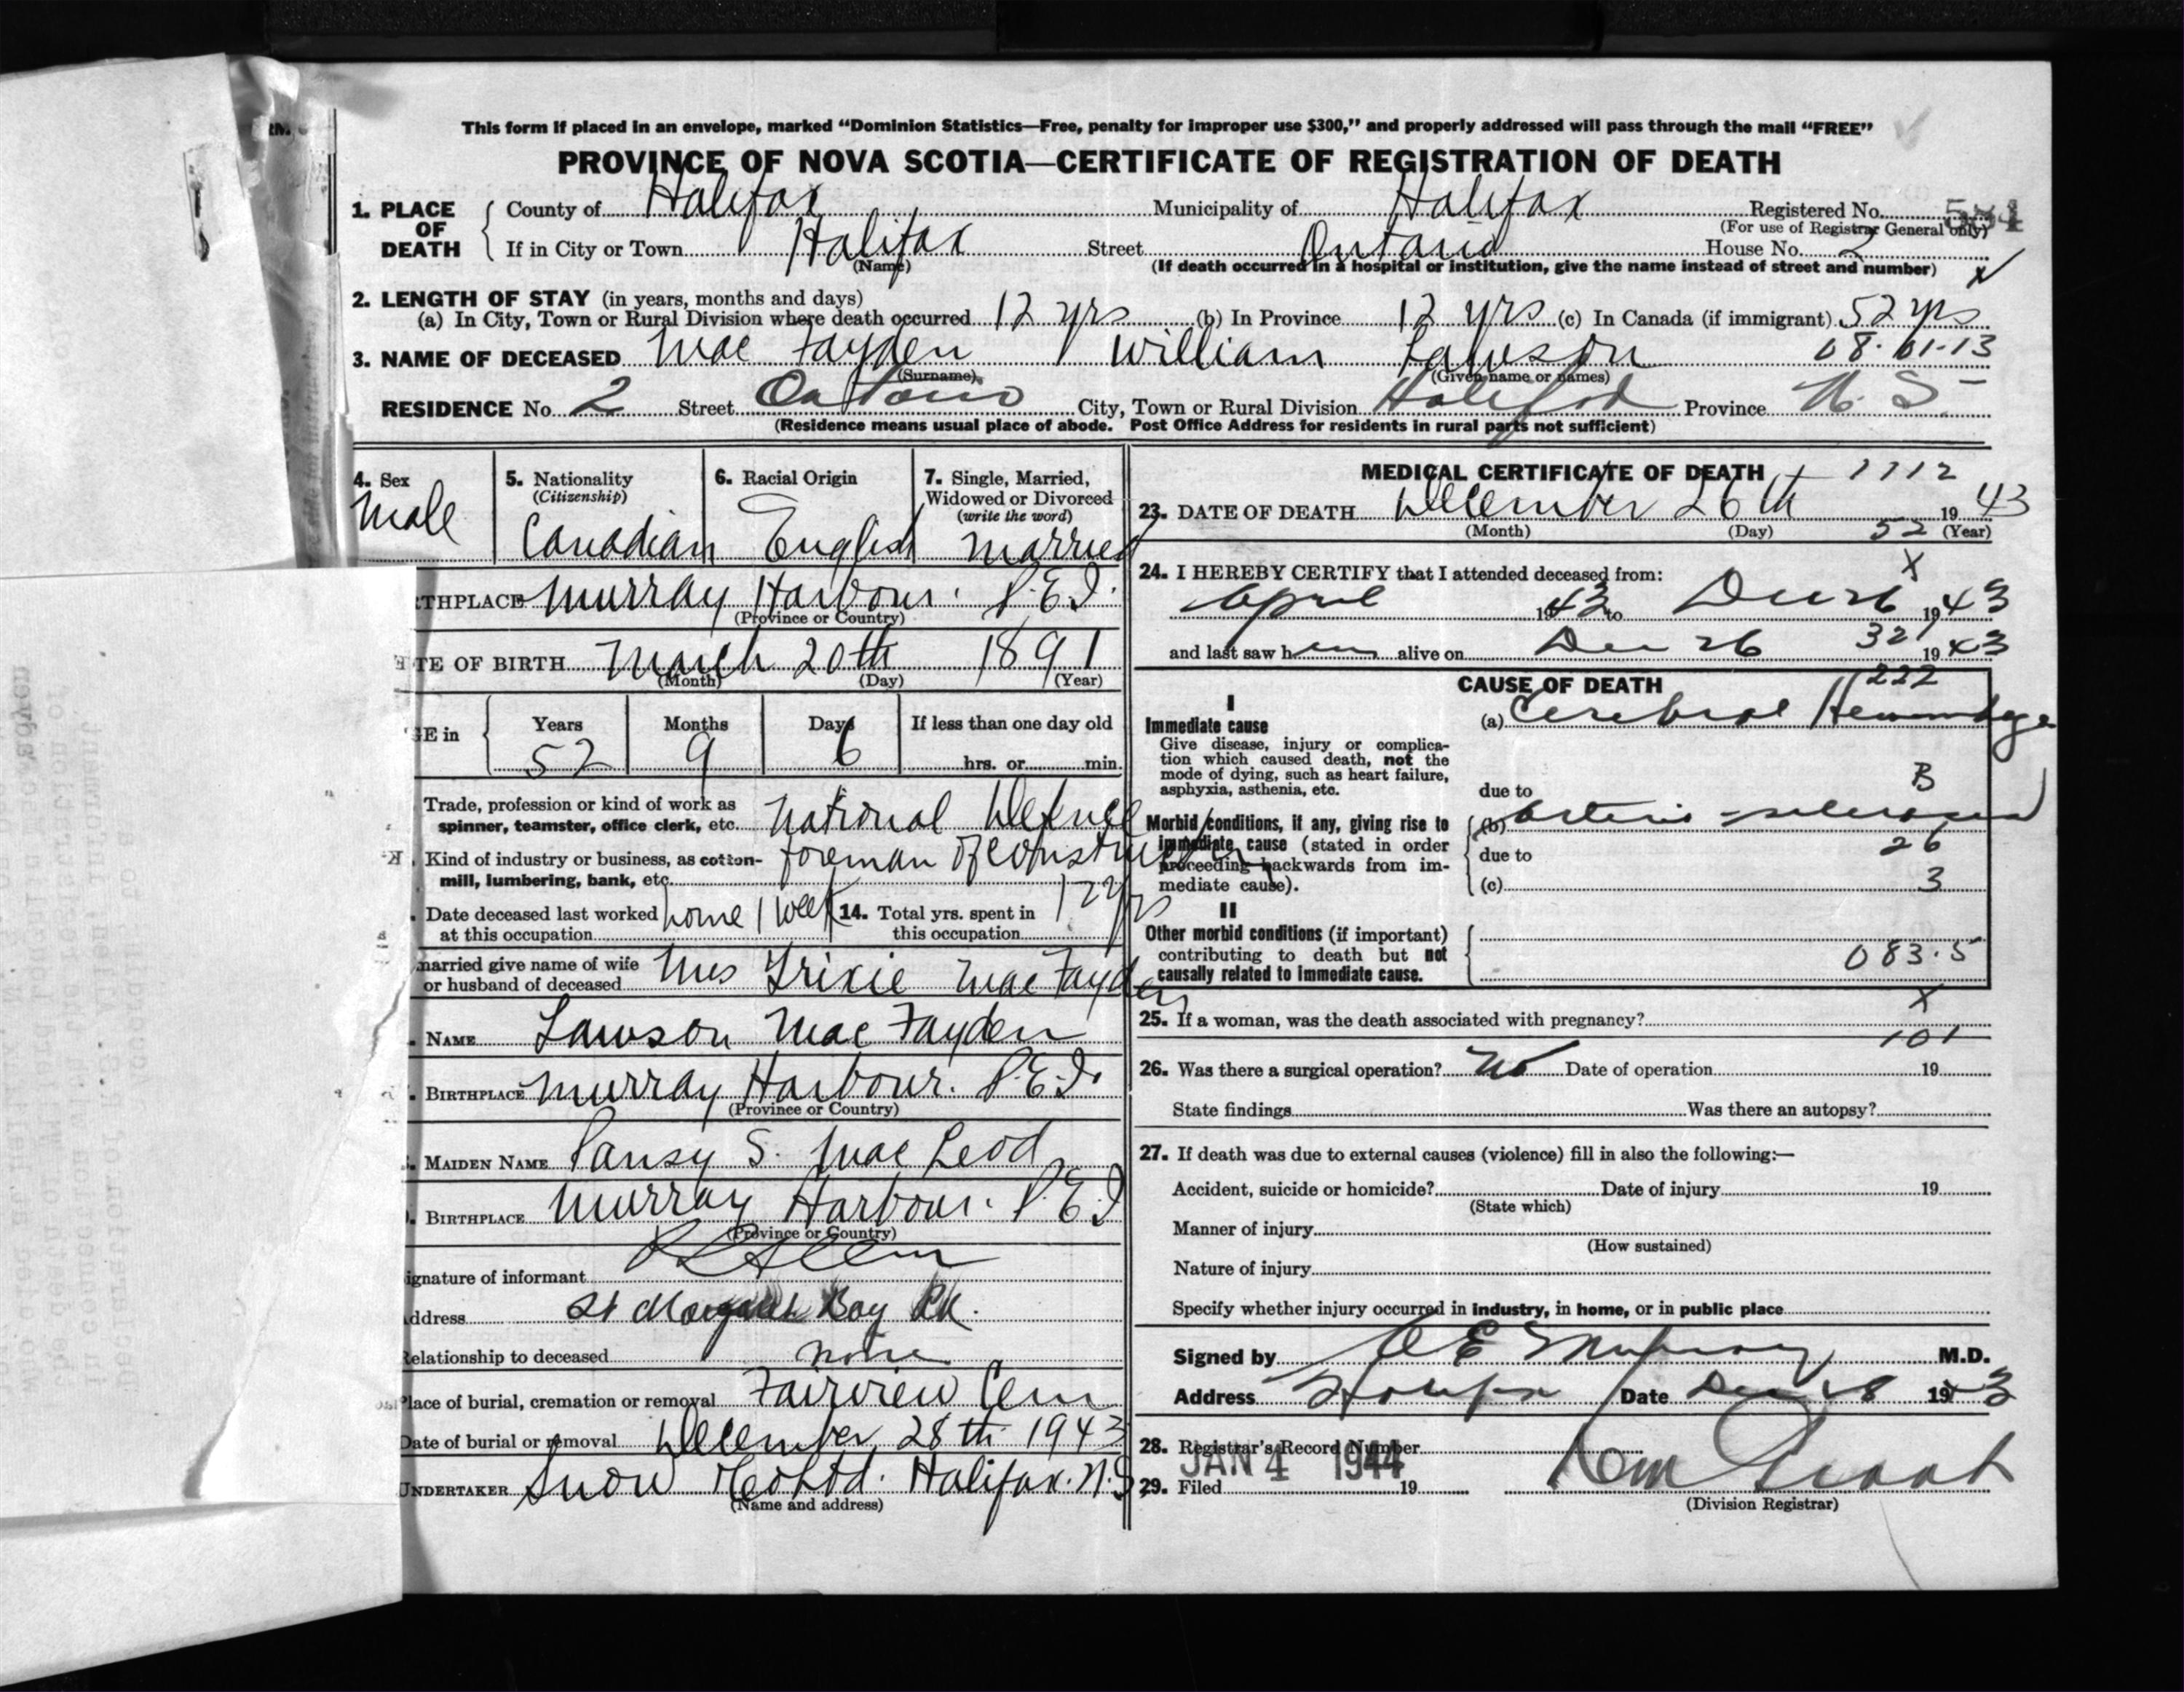 This form if placed in an envelope, marked “Dominion Statistics—Free, penalty for improper use $300,” and properly addressed will pass through the mail “FREE”
PROVINCE OF NOVA SCOTIA—CERTIFICATE OF REGISTRATION OF DEATH
1. PLACE OF DEATH County of Halifax Municipality of Halifax Registered No.
(For use of Registrar General only)
If in City or Town Halifax Street Ontario House No. 2
(Name) (If death occurred in a hospital or institution, give the name instead of street and number) x
2. LENGTH OF STAY (in years, months and days)
(a) In City, Town or Rural Division where death occurred 12 yrs (b) In Province 12 yrs (c) In Canada (if immigrant) 52 yrs
3. NAME OF DECEASED Mac Fayden William Lawson 08-01-13
(Surname) (Given name or names)
RESIDENCE No. 2 Street Ontario City, Town or Rural Division Halifax Province N. S.
(Residence means usual place of abode. Post Office Address for residents in rural parts not sufficient)
4. Sex 5. Nationality 6. Racial Origin 7. Single, Married,
(Citizenship) Widowed or Divorced
(write the word)
Male Canadian English Married
THPLACE Murray Harbour. P.E.I.
(Province or Country)
TE OF BIRTH March 20th 1891
(Month) (Day) (Year)
GE in Years Months Days If less than one day old
52 9 6 hrs. or min.
Trade, profession or kind of work as
spinner, teamster, office clerk, etc. National Defence
Kind of industry or business, as cotton-
mill, lumbering, bank, etc. foreman of construction
Date deceased last worked home 1 week 14. Total yrs. spent in 12 yrs
at this occupation this occupation
married give name of wife Mrs Trixie MacFayden
or husband of deceased
NAME Lawson Mac Fayden
BIRTHPLACE Murray Harbour. P.E.I.
(Province or Country)
MAIDEN NAME Pansy S. Mac Leod
BIRTHPLACE Murray Harbour. P.E.I
(Province or Country)
ignature of informant
ddress St Margaret Bay Rd.
Relationship to deceased none
Place of burial, cremation or removal Fairview Cem
Date of burial or removal December 28th 1943
UNDERTAKER Snow & Co Ltd. Halifax. N.S
(Name and address)
MEDICAL CERTIFICATE OF DEATH 1112
23. DATE OF DEATH December 26th 1943
(Month) (Day) 52 (Year)
24. I HEREBY CERTIFY that I attended deceased from: x
April 1943 to Dec 26 1943
and last saw him alive on Dec 26 32 1943
CAUSE OF DEATH 222
I
Immediate cause (a) Cerebral Hemorrhage
Give disease, injury or complica-
tion which caused death, not the
mode of dying, such as heart failure,
asphyxia, asthenia, etc. due to B
Morbid conditions, if any, giving rise to (b) Arterio-sclerosis
immediate cause (stated in order due to 26
proceeding backwards from im-
mediate cause). (c) 3
II
Other morbid conditions (if important)
contributing to death but not 083.5
causally related to immediate cause.
x
25. If a woman, was the death associated with pregnancy?
101
26. Was there a surgical operation? No Date of operation 19
State findings Was there an autopsy?
27. If death was due to external causes (violence) fill in also the following:—
Accident, suicide or homicide? Date of injury 19
(State which)
Manner of injury
(How sustained)
Nature of injury
Specify whether injury occurred in industry, in home, or in public place
Signed by M.D.
Address Halifax Date Dec 28 1943
28. Registrar's Record Number
JAN 4 1944
29. Filed 19
(Division Registrar)